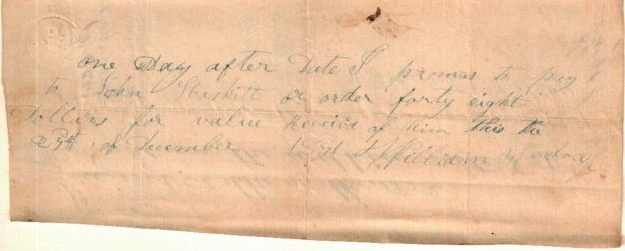 one Day after Date I promas to pay
to John or order forty eight
Dollers for value Received of him this the
of December William